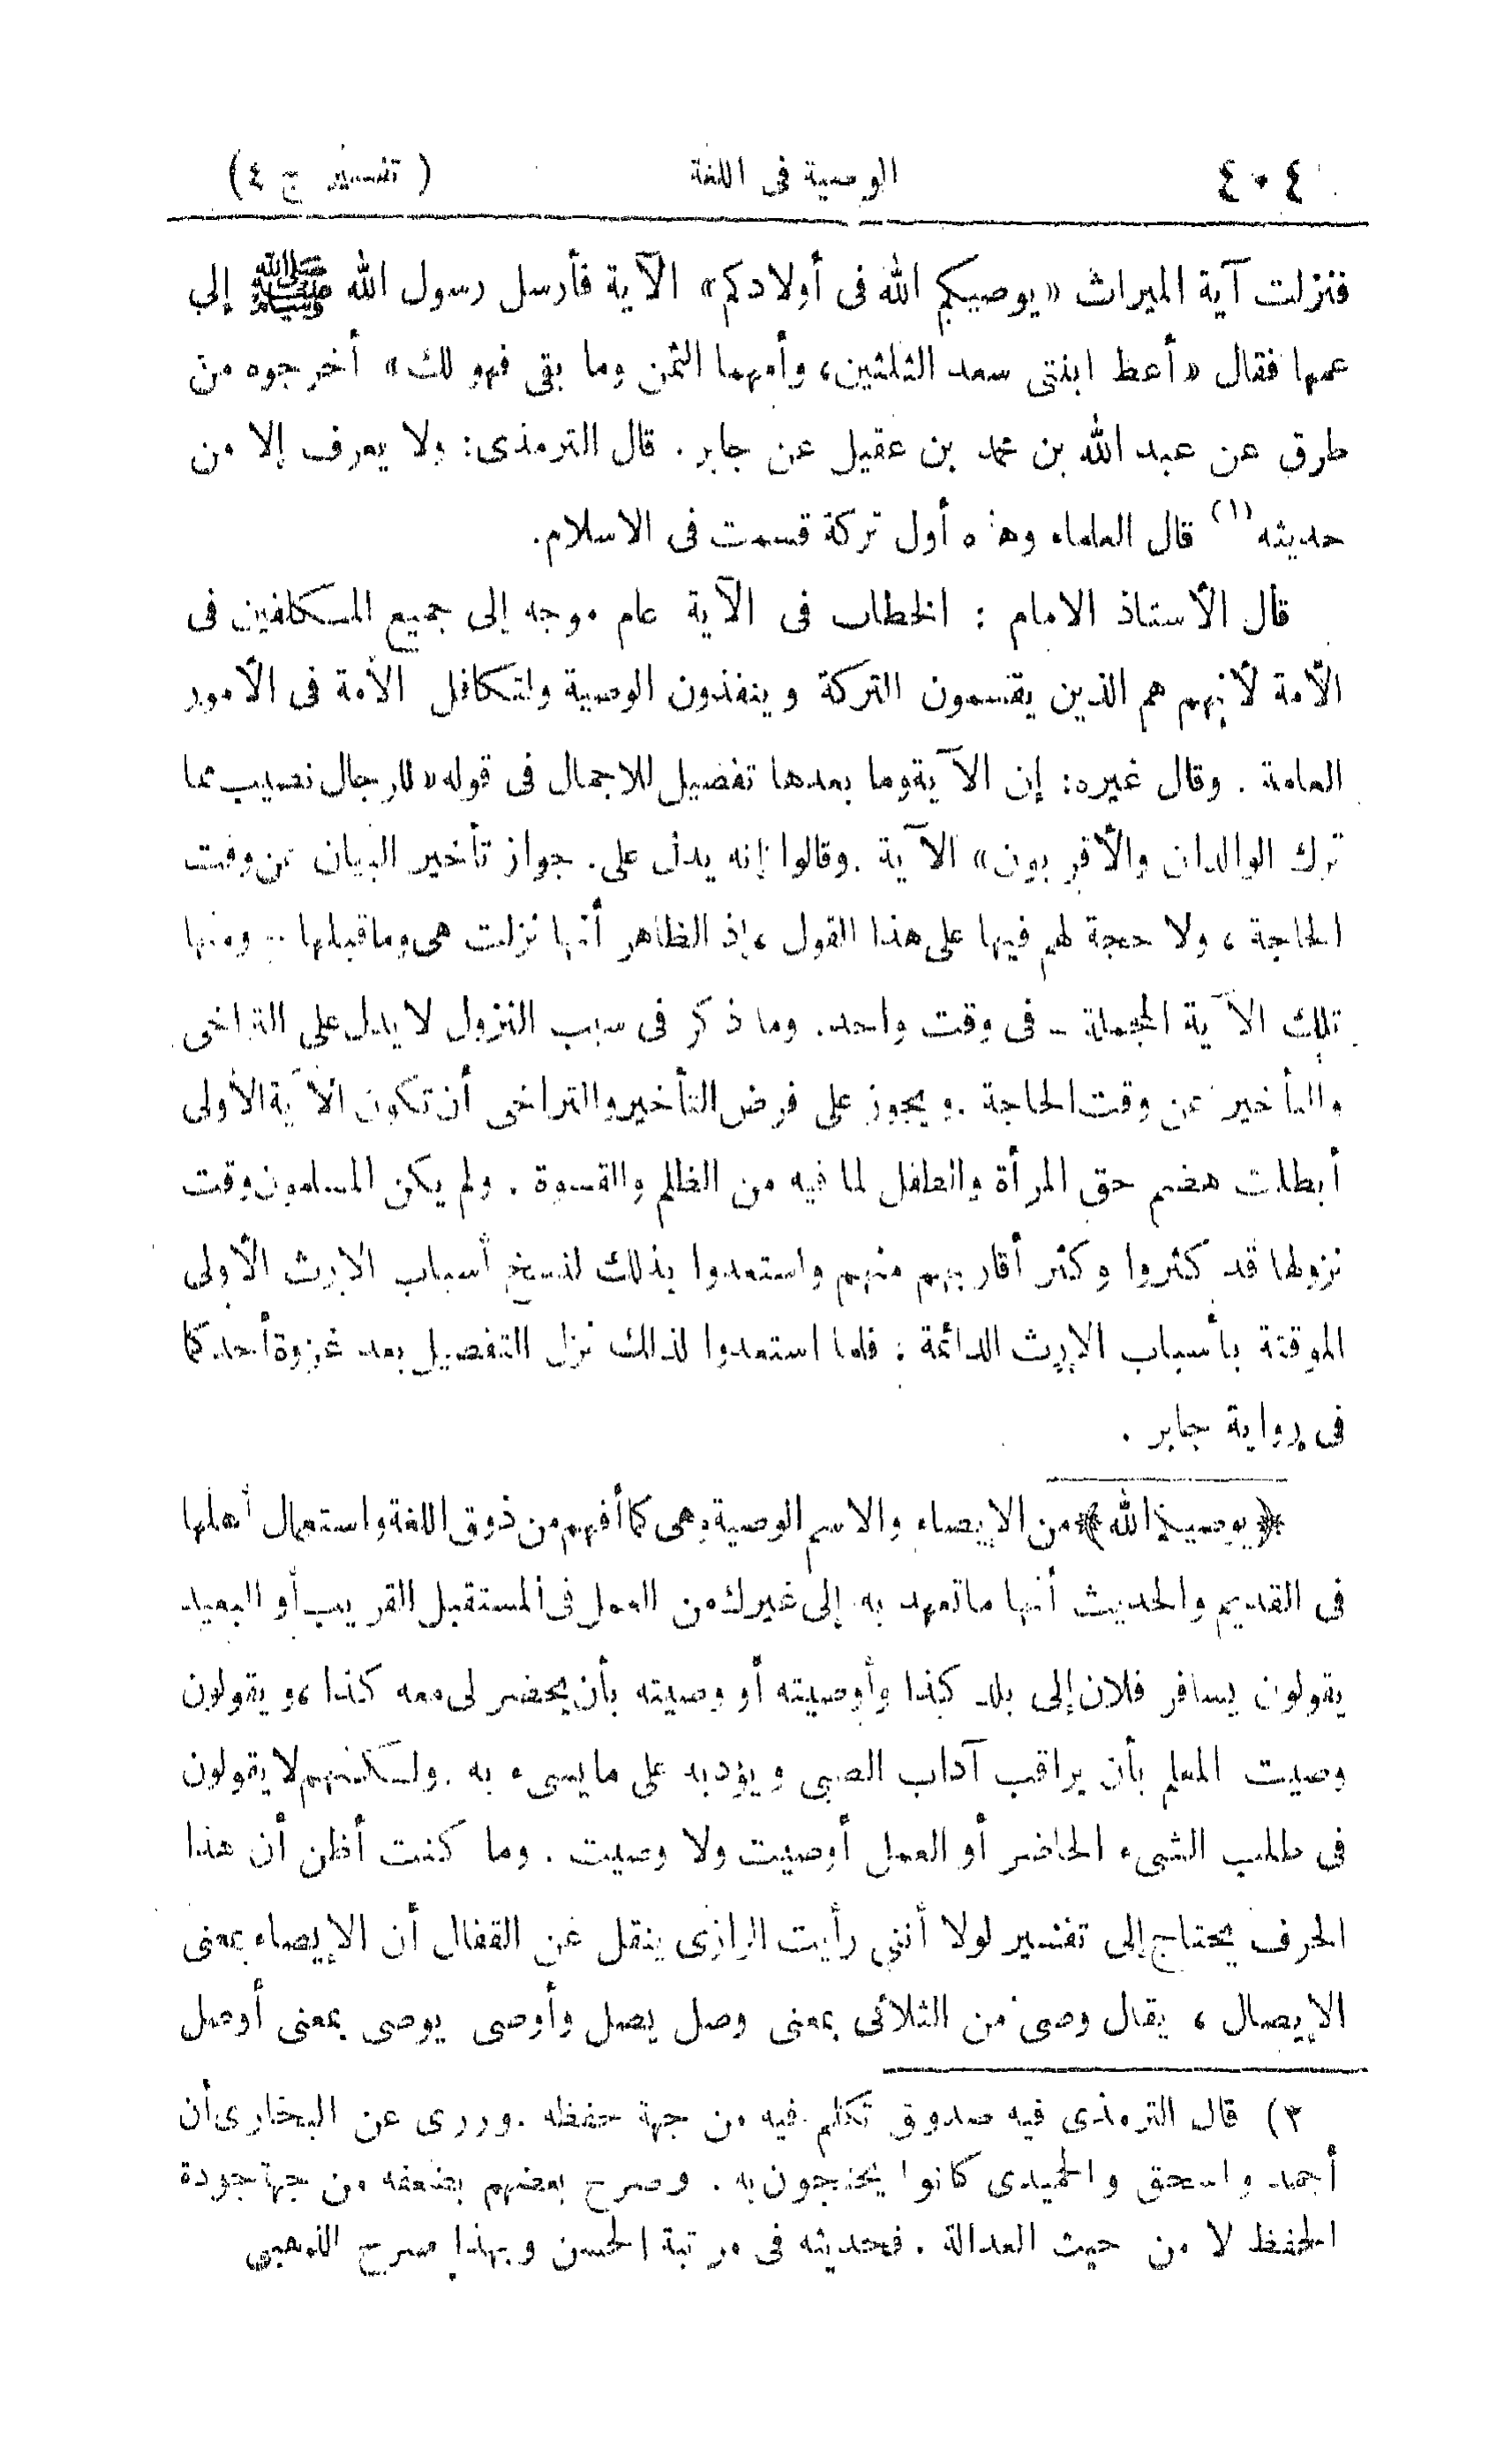 ٤٠٤ الوصية فى اللغة ( تفسير ج ٤)
فنزلت آية الميراث «يوصيكم الله فى أولادكم» الآية فأرسل رسول الله ﷺ إلى
عمهما فقال «أعط ابنتى سعد الثلثين، وأمهما الثمن وما بقى فهو لك» أخرجوه من
طرق عن عبد الله بن محمد بن عقيل عن جابر . قال الترمذى: ولا يعرف إلا من
حديثه (١) قال العلماء وهذه أول تركة قسمت فى الاسلام.
قال الأستاذ الامام : الخطاب فى الآية عام موجه إلى جميع المكلفين فى
الأمة لأنهم هم الذين يقسمون التركة وينفذون الوصية ولتكافل الأمة فى الأمور
العامة . وقال غيره: إن الآية وما بعدها تفصيل للاجمال فى قوله «للرجال نصيب مما
ترك الوالدان والأقربون» الآية . وقالوا إنه يدل على جواز تأخير البيان عن وقت
الحاجة ، ولا حجة لهم فيها على هذا القول ، إذ الظاهر أنها نزلت هى وما قبلها - ومنها
تلك الآية المجملة - فى وقت واحد. وما ذكر فى سبب النزول لا يدل على التراخى
والتأخير عن وقت الحاجة . ويجوز على فرض التأخير والتراخى أن تكون الآية الأولى
أبطلت هضم حق المرأة والطفل لما فيه من الظلم والقسوة . ولم يكن المسلمون وقت
نزولها قد كثروا وكثر أقاربهم منهم واستعدوا بذلك لنسخ أسباب الارث الأولى
الموقتة بأسباب الإرث الدائمة ; فلما استعدوا لذلك نزل التفصيل بعد غزوة أحد كما
فى رواية جابر .
﴿يوصيكم الله﴾ من الإيصاء والاسم الوصية وهى كما أفهم من ذوق اللغة واستعمال أهلها
فى القديم والحديث أنها ما تعهد به إلى غيرك من العمل فى المستقبل القريب أو البعيد
يقولون يسافر فلان إلى بلد كذا وأوصيته أو وصيته بأن يحضر لى معه كذا ، ويقولون
وصيت المعلم بأن يراقب آداب الصبى ويؤدبه على ما يسىء به . ولكنهم لا يقولون
فى طلب الشىء الحاضر أو العمل أوصيت ولا وصيت . وما كنت أظن أن هذا
الحرف يحتاج إلى تفسير لولا أننى رأيت الرازى ينقل عن القفال أن الإيصاء بمعنى
الإيصال ، يقال وصى من الثلاثى بمعنى وصل يصل وأوصى يوصى بمعنى أوصل
٣) قال الترمذى فيه صدوق تكلم فيه من جهة حفظه . وروى عن البخارى أن
أحمد واسحق والحميدى كانوا يحتجون به . وصرح بعضهم بضعفه من جهة جودة
الحفظ لا من حيث العدالة . فحديثه فى مرتبة الحسن وبهذا صرح الذهبى